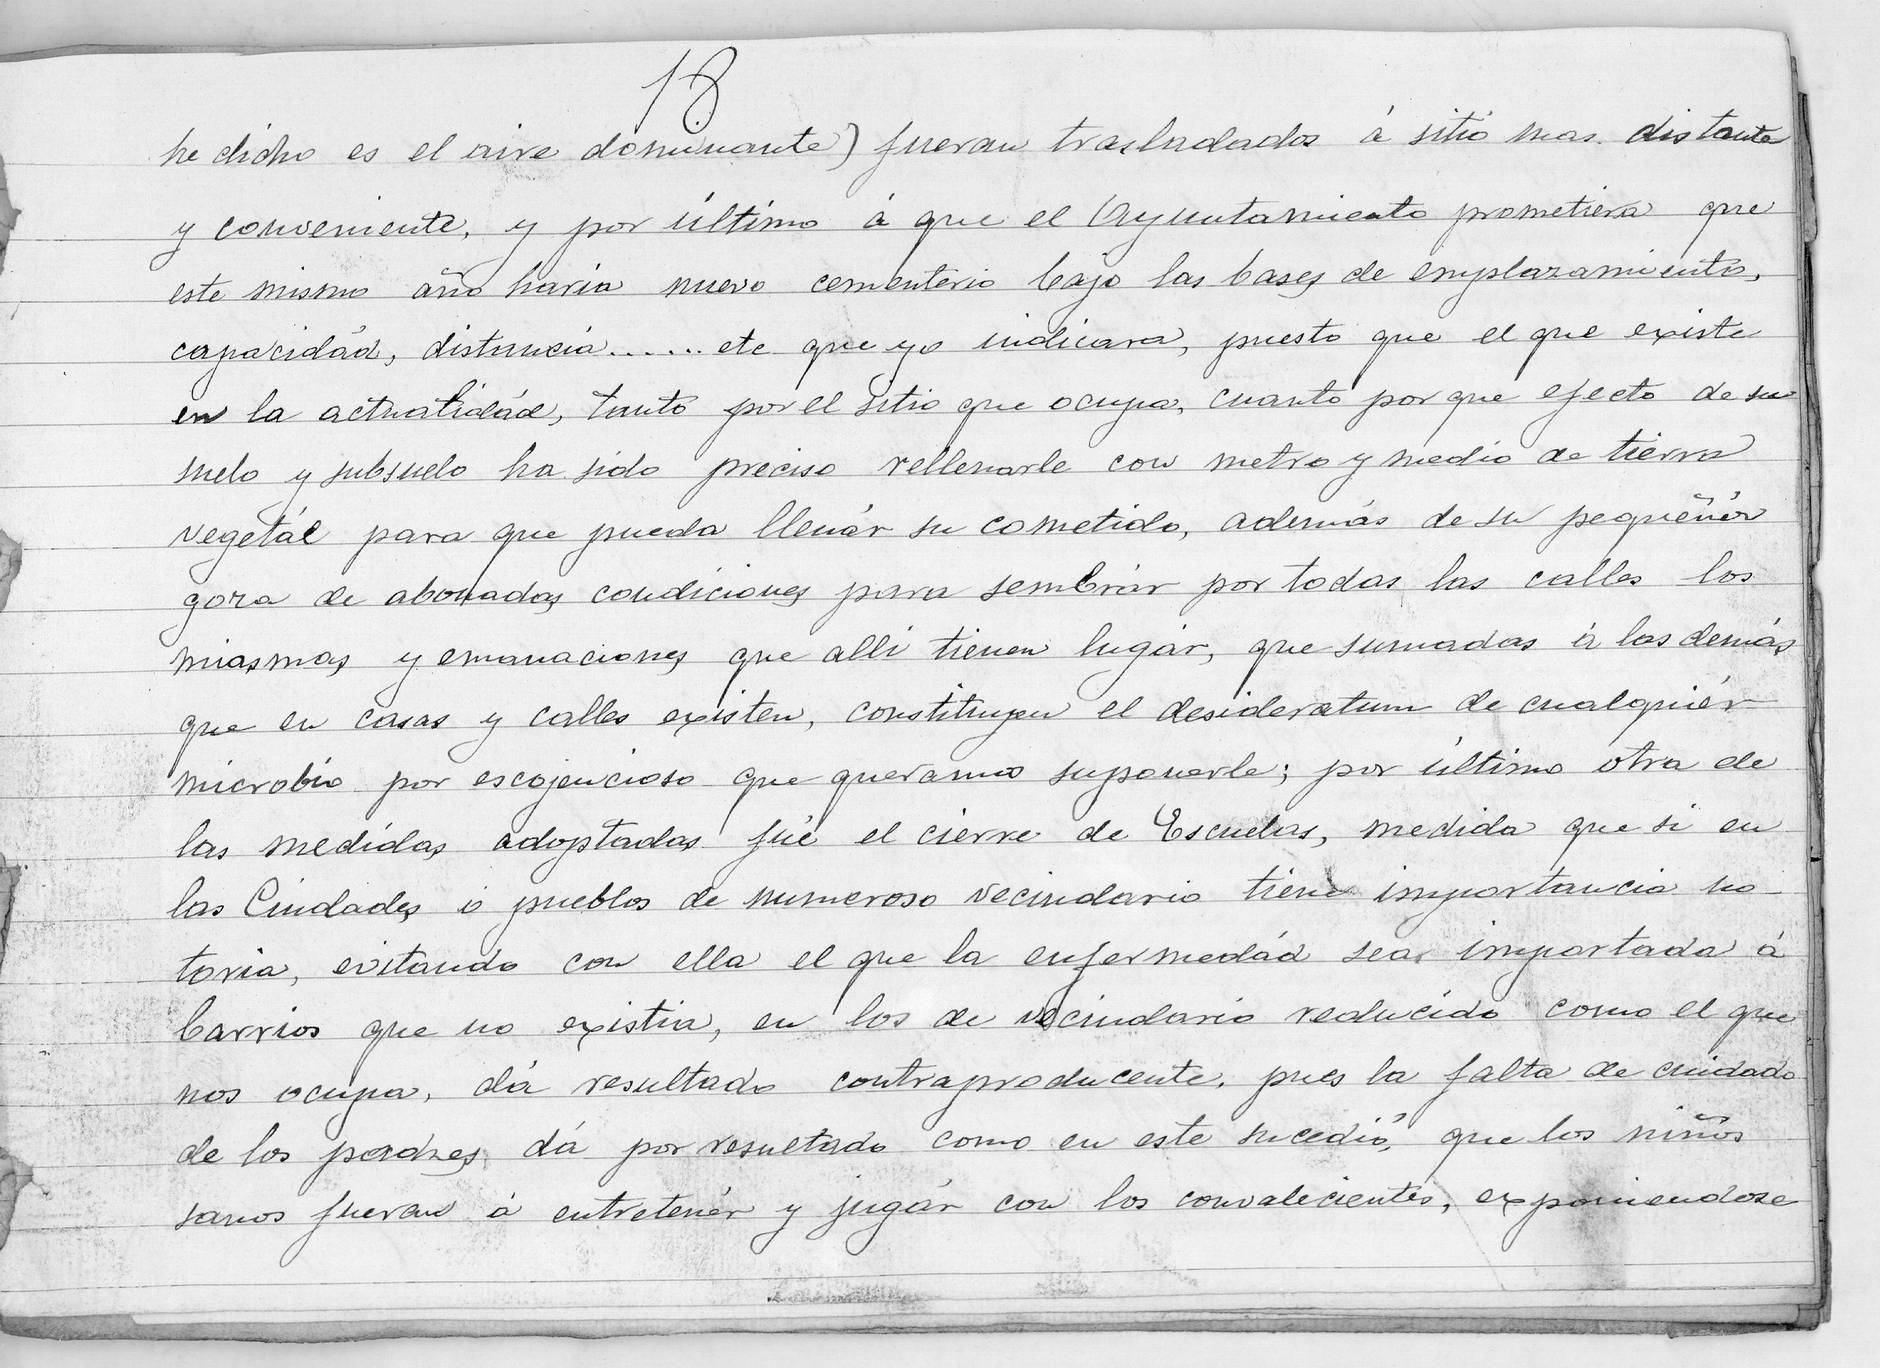 18
he dicho es el aire dominante) fueran trasladados á sitio mas distante
y conveniente, y por último á que el Ayuntamiento prometiera que
este mismo año haria nuevo cementerio bajo las bases de emplazamiento,
capacidád, distancia...... etc que yo indicara, puesto que el que existe
en la actualidád, tanto por el sitio que ocupa, cuanto por que efecto de su
suelo y subsuelo ha sido preciso rellenarle con metro y medio de tierra
vegetál para que pueda llenár su cometido, además de su pequeñéz
goza de abonadas condiciones para sembrár por todas las calles los
miasmas y emanaciones que alli tienen lugár, que sumadas á las demás
que en casas y calles existen, constituyen el desideratum de cualquiér
microbio por escojencioso que queramos suponerle; por último otra de
las medidas adoptadas fué el cierre de Escuelas, medida que si en
las Ciudades ó pueblos de numeroso vecindario tiene importancia no-
toria, evitando con ella el que la enfermedád sea importada á
barrios que no existia, en los de vecindario reducido como el que
nos ocupa, dá resultado contraproducente, pues la falta de cuidado
de los padres dá por resultado como en este sucedió, que los niños
sanos fueran á entretenér y jugár con los convalecientes, exponiendose